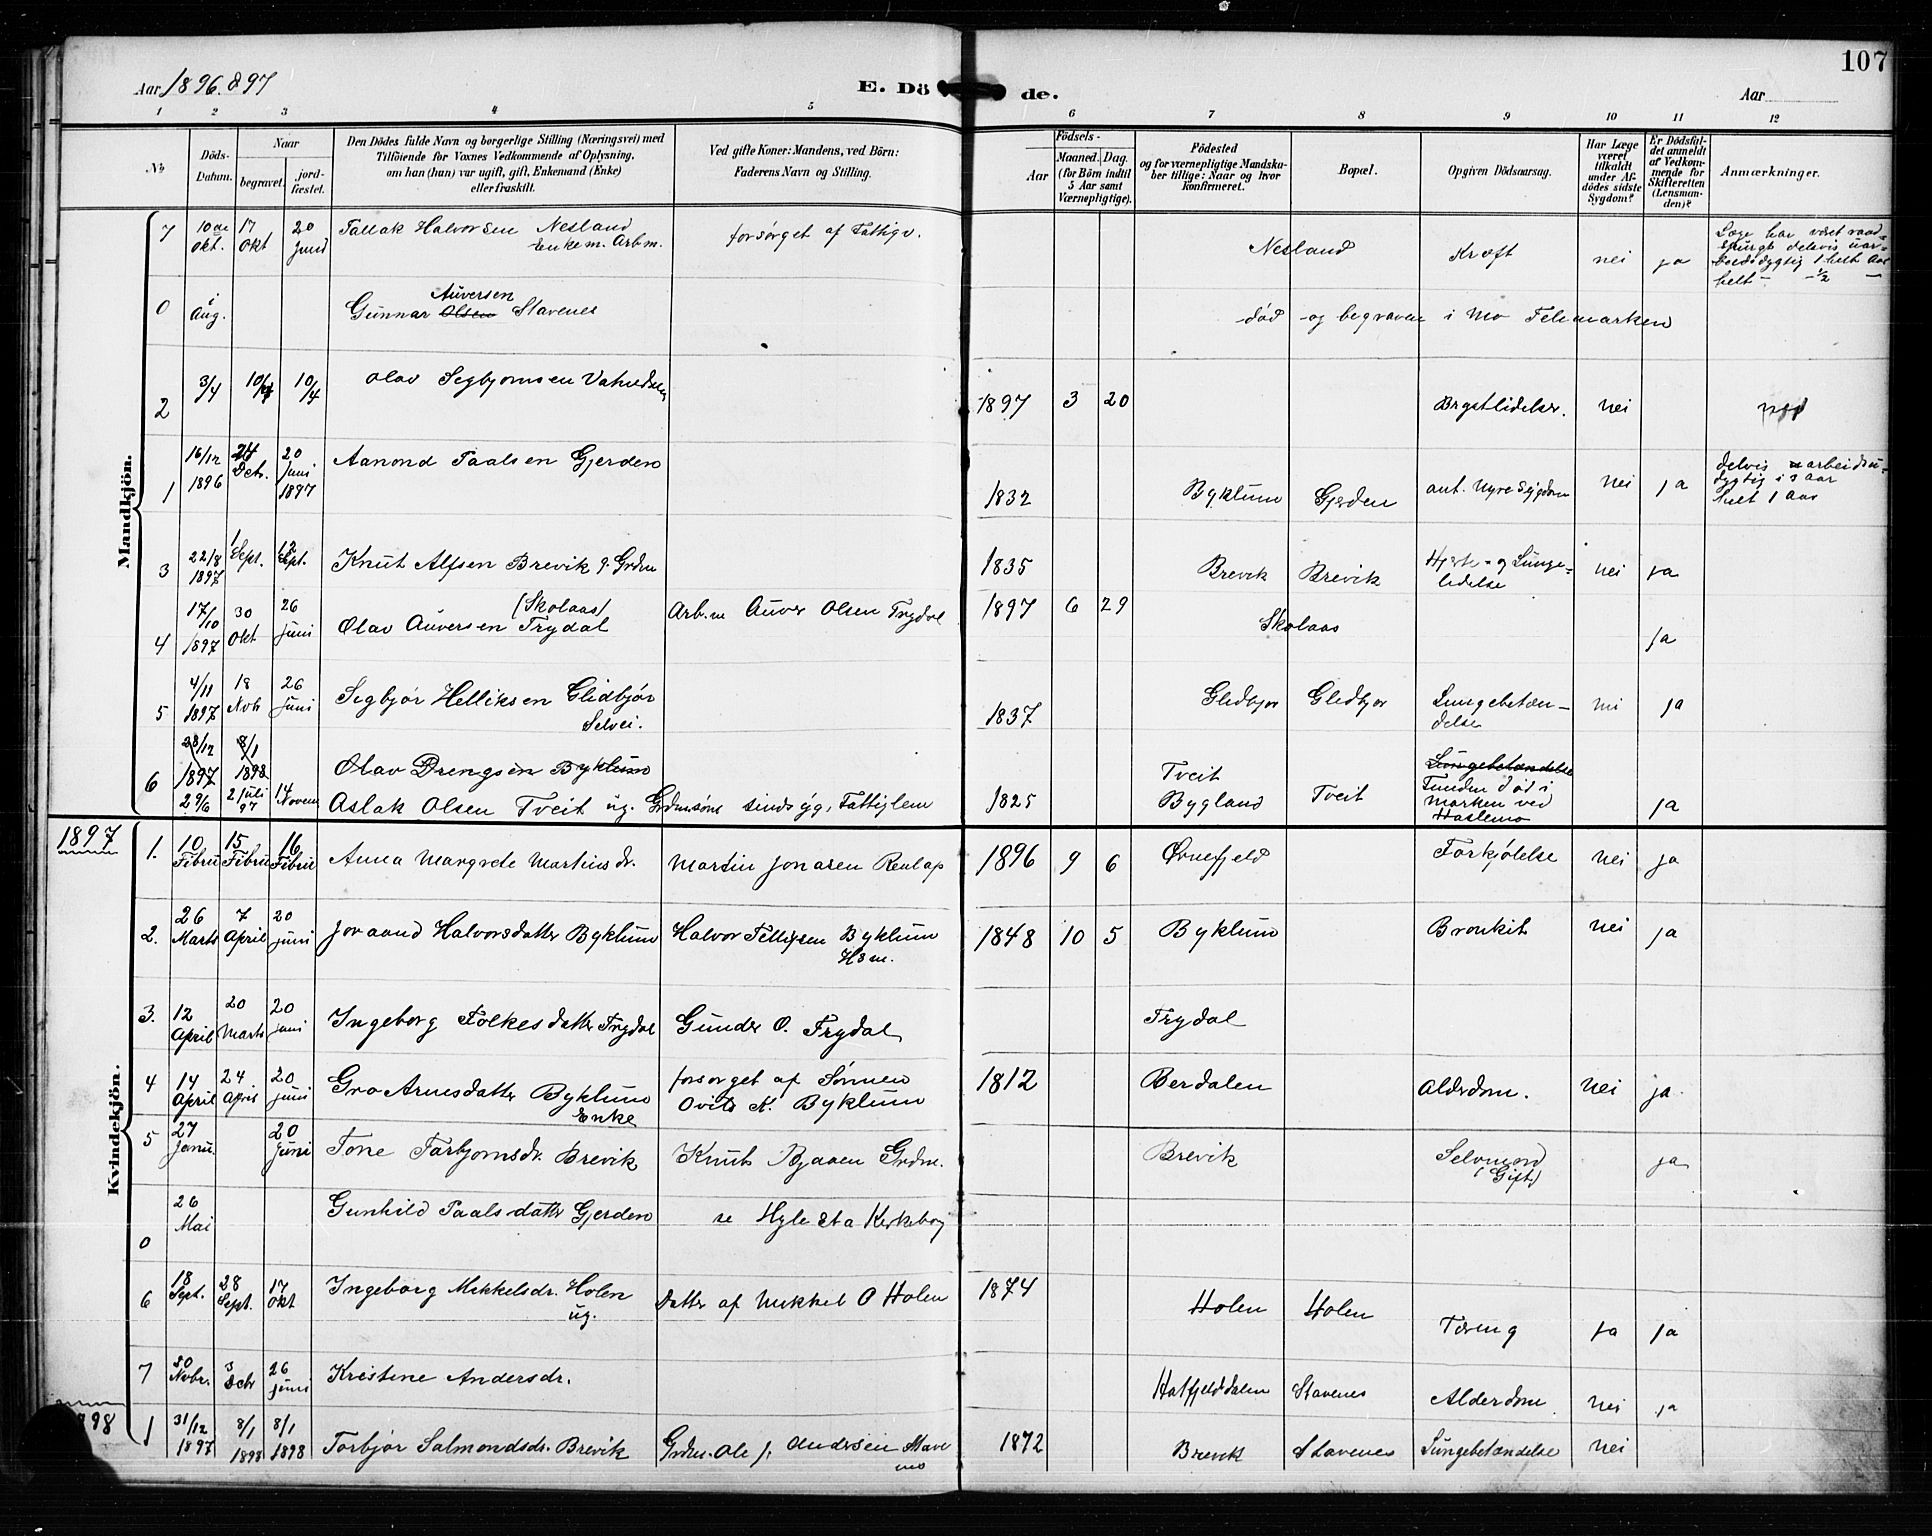 107
Aar 1896. 897
E. Dö de.
Aar
1 2 3 4 5 6 7 8 9 10 11 12
No
Döds-
Datum.
Naar
begravet.
jord-
fæstet.
Den Dödes fulde Navn og borgerlige Stilling (Næringsvei) med
Tilföiende for Voxnes Vedkommende af Oplysning,
om han (hun) var ugift, gift, Enkemand (Enke)
eller fraskilt.
Ved gifte Koner: Mandens, ved Börn:
Faderens Navn og Stilling.
Födsels-
Aar
Maaned. Dag.
(for Börn indtil
5 Aar samt
Værnepligtige).
Födested
og for værnepligtige Mandska-
ber tillige: Naar og hvor
konfirmeret.
Bopæl.
Opgiven Dödsaarsag.
Har Læge
været
tilkaldt
under Af-
dödes sidste
Sygdom?
Er Dödsfal-
det anmeldt
af Vedkom-
mende for
Skifteretten
(Lensman-
den)?
Anmærkninger.
Mandkjön.
7 10de Okt. 17 Okt 20 Juni Tallak Halvorsen Nesland Enkem. Arbm. forsørget af Fattigv. Nesland Kræft nei ja Læge har været raad-
spurgt delvis uar-
beidsdygtig 1 helt Aar
helt - 1/2 -
0 i Aug. Gunnar Olsen Auversen Stavenes død og begraven i Mo Telemarken
2 3/4 10/4 10/4 Olav Segbjornsen 1897 3 20 Brystlidelse. Nei
1 16/12 1896 24 Decb. 20 Juni 1897 Aanond Paalsen Gjerden 1832 Byklum Gjerden ant. Nyresygdom Nei ja delvis uarbeidsu-
dygtig i 3 aar
helt 1 aar
3 22/8 1897 1 Sept. 12 Sept. Knut Alfsen Brevik g. Grdm 1835 Brevik Brevik Hjerte- og Lunge-
lidelse nei ja
4 17/10 1897 30 Okt 26 Juni Olav Auversen (Skolaas) Trydal Arb.m Auver Olsen Trydal 1897 6 29 Skolaas ja
5 4/11 1897 18 Nov 26 Juni Segbjør Helliksen Glidbjør
Selvei. 1837 Gledbjor Gledbjor Lungebetæn-
delse nei ja
6 28/12 1897 8/1 1898 Olav Drengsen Byklum Lungebetændelse
29/6 2 Juli 97 14 Novem Aslak Olsen Tveit ug. Grdmsøn sindsyg, Fattiglem 1825 Tveit
Bygland Tveit Funden død i
marken ved
Haslemo ja
1897
Kvindekjön.
1. 10 Febru 15 Febru 16 Febru Anna Margrete Martinsdr. Martin Jonasen Renlap 1896 9 6 Ørnefjeld Forkjølelse Nei ja
2. 26 Marts 7 April 20 Juni Joraand Halvorsdatter Byklum Halvor Tellefsen Byklum
Hsm. 1848 10 5 Byklum Bronkit Nei ja
3. 12 April 20 Marts 20 Juni Ingeborg Folkesdatter Trydal Gunder O. Trydal Trydal
4 14 April 24 April 20 Juni Gro Arnesdatter Byklum
Enke forsorget af Sønnen
K. Byklum 1812 Berdalen Alderdom. Nei ja.
5 27 Janu. 20 Juni Tone Torbjornsdr. Brevik Knut Bjaaen Grdm. Brevik Selvmord
(Gift) ja
0 26 Mai Gunhild Paalsdatter Gjerden se Hylesta Kirkebog
6 18 Sept. 28 Sept. 17 Okt Ingeborg Mikkelsdr. Holen
ug. Datter af Mikkel O Holen 1874 Holen Holen Tæring ja ja
7 20 Novbr. 3 Dcbr 26 Juni Kristine Andersdr. Hatfjelddalen Stavenes Alderdom Nei ja
98
1 31/12 1897 8/1 1898 8/1 1898 Torbjør Salmondsdr. Brevik Grdm. Ole J. Andersen Stave
nes 1872 Brevik Stavenes Lungebetændelse Nei